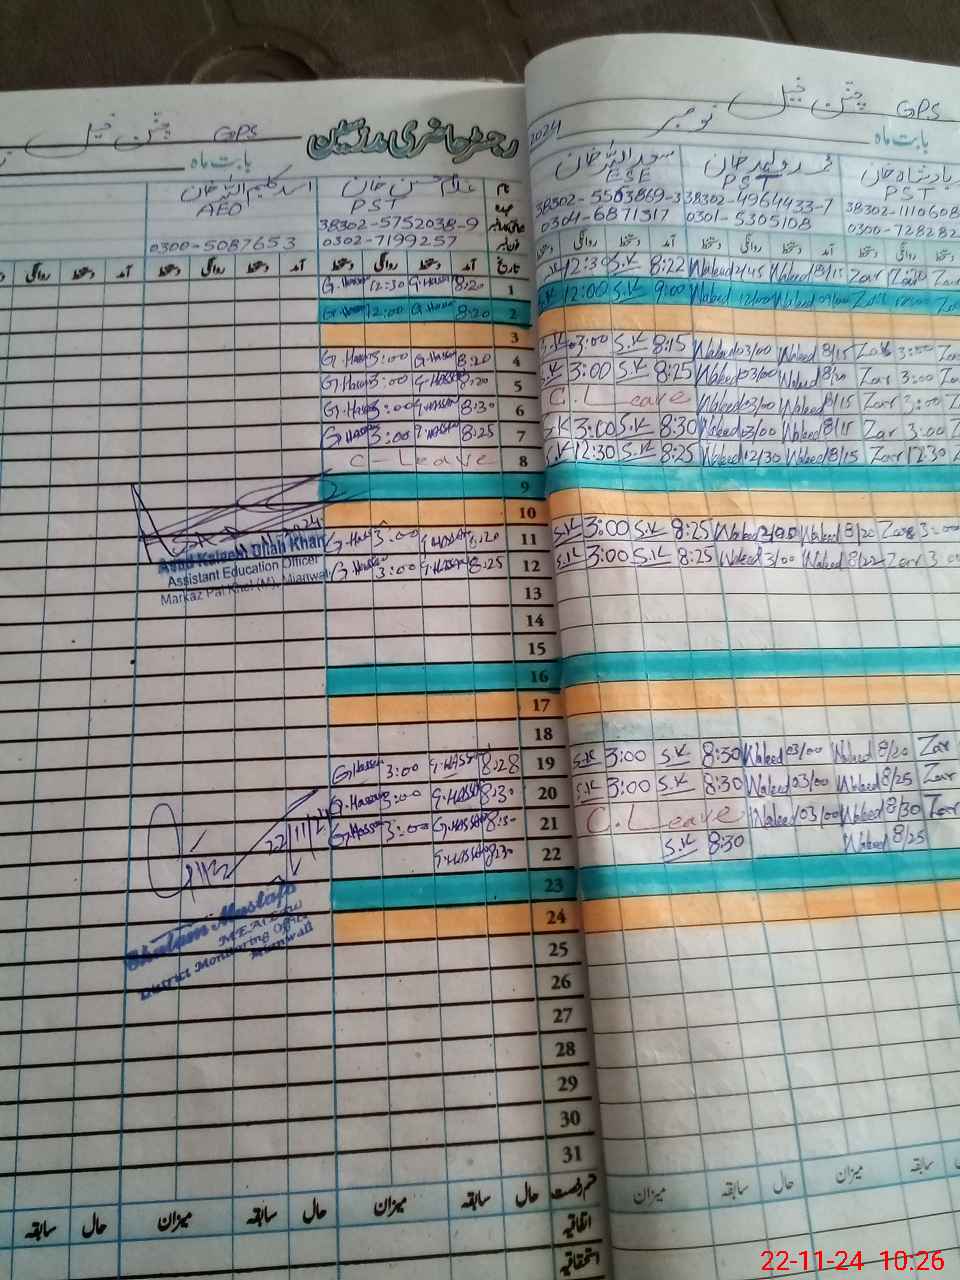 GPS
رجسٹر حاضری مدرسین
بابت ماہ
نام
غلام حسن خان
اسد کلیم اللہ خان
PST
AEO
38302-5752038-9
0302-7199257
0300-5087653
تاریخ
آمد دستخط روانگی دستخط آمد دستخط روانگی دستخط آمد دستخط روانگی
1 8:20 G.Hassan 12:30 G.Hassan
2 8:20 G.Hassan 12:00 G.Hassan
3
4 8:20 G.Hassan 3:00 G.Hassan
5 8:20 G.Hassan 3:00 G.Hassan
6 8:30 G.Hassan 3:00 G.Hassan
7 8:25 G.Hassan 3:00 G.Hassan
8 C-Leave
9
10
11 8:20 G.Hassan 3:00 G.Hassan
12 8:25 G.Hassan 3:00 G.Hassan
Asad Kaleem Ullah Khan
Assistant Education Officer
Markaz Pai Khel (M), Mianwali
13
14
15
16
17
18
19 8:28 G.Hassan 3:00 G.Hassan
20 8:30 G.Hassan 3:00 G.Hassan
21 G.Hassan 3:00 G.Hassan
22 8:30 G.Hassan
22/11/24
Ghulam Mustafa
District Monitoring Officer
Mianwali
23
24
25
26
27
28
29
30
31
قسم رخصت حال سابقہ میزان حال سابقہ میزان حال سابقہ
اتفاقیہ
استحقاقیہ
GPS
نومبر
2024
بابت ماہ
سعد اللہ خان
ESE
PST
PST
38302-5503869-3
38302-4964433-7
38302-1110608
0304-6871317
0301-5305108
0300-728282
آمد دستخط روانگی دستخط آمد دستخط روانگی دستخط
S.K 12:30 S.K 8:22 Waleed 12/45 Waleed 8/15 Zar
S.K 12:00 S.K 9:00 Waleed 12/00 Waleed 09/00
S.K 3:00 S.K 8:15 Waleed 03/00 Waleed 8/15 Zar 3:00
S.K 3:00 S.K 8:25 Waleed 03/00 Waleed Zar 3:00
C.Leave Waleed 03/00 Waleed 8/15 Zar 3:00
S.K 3:00 S.K 8:30 Waleed 03/00 Waleed 8/15 Zar 3:00
S.K 12:30 S.K 8:25 Waleed 12/30 Waleed 8/15 Zar 12:30
S.K 3:00 S.K 8:25 Waleed Waleed 8/20 Zar 3:00
S.K 3:00 S.K 8:25 Waleed 3/00 Waleed 8/22 Zar 3:00
S.K 3:00 S.K 8:30 Waleed 03/00 Waleed 8/20 Zar
S.K 3:00 S.K 8:30 Waleed 03/00 Waleed 8/25 Zar
C.Leave Waleed 03/00 Waleed 8/30 Zar
S.K 8:30 Waleed 8/25
میزان سابقہ حال میزان سابقہ
22-11-24 10:26